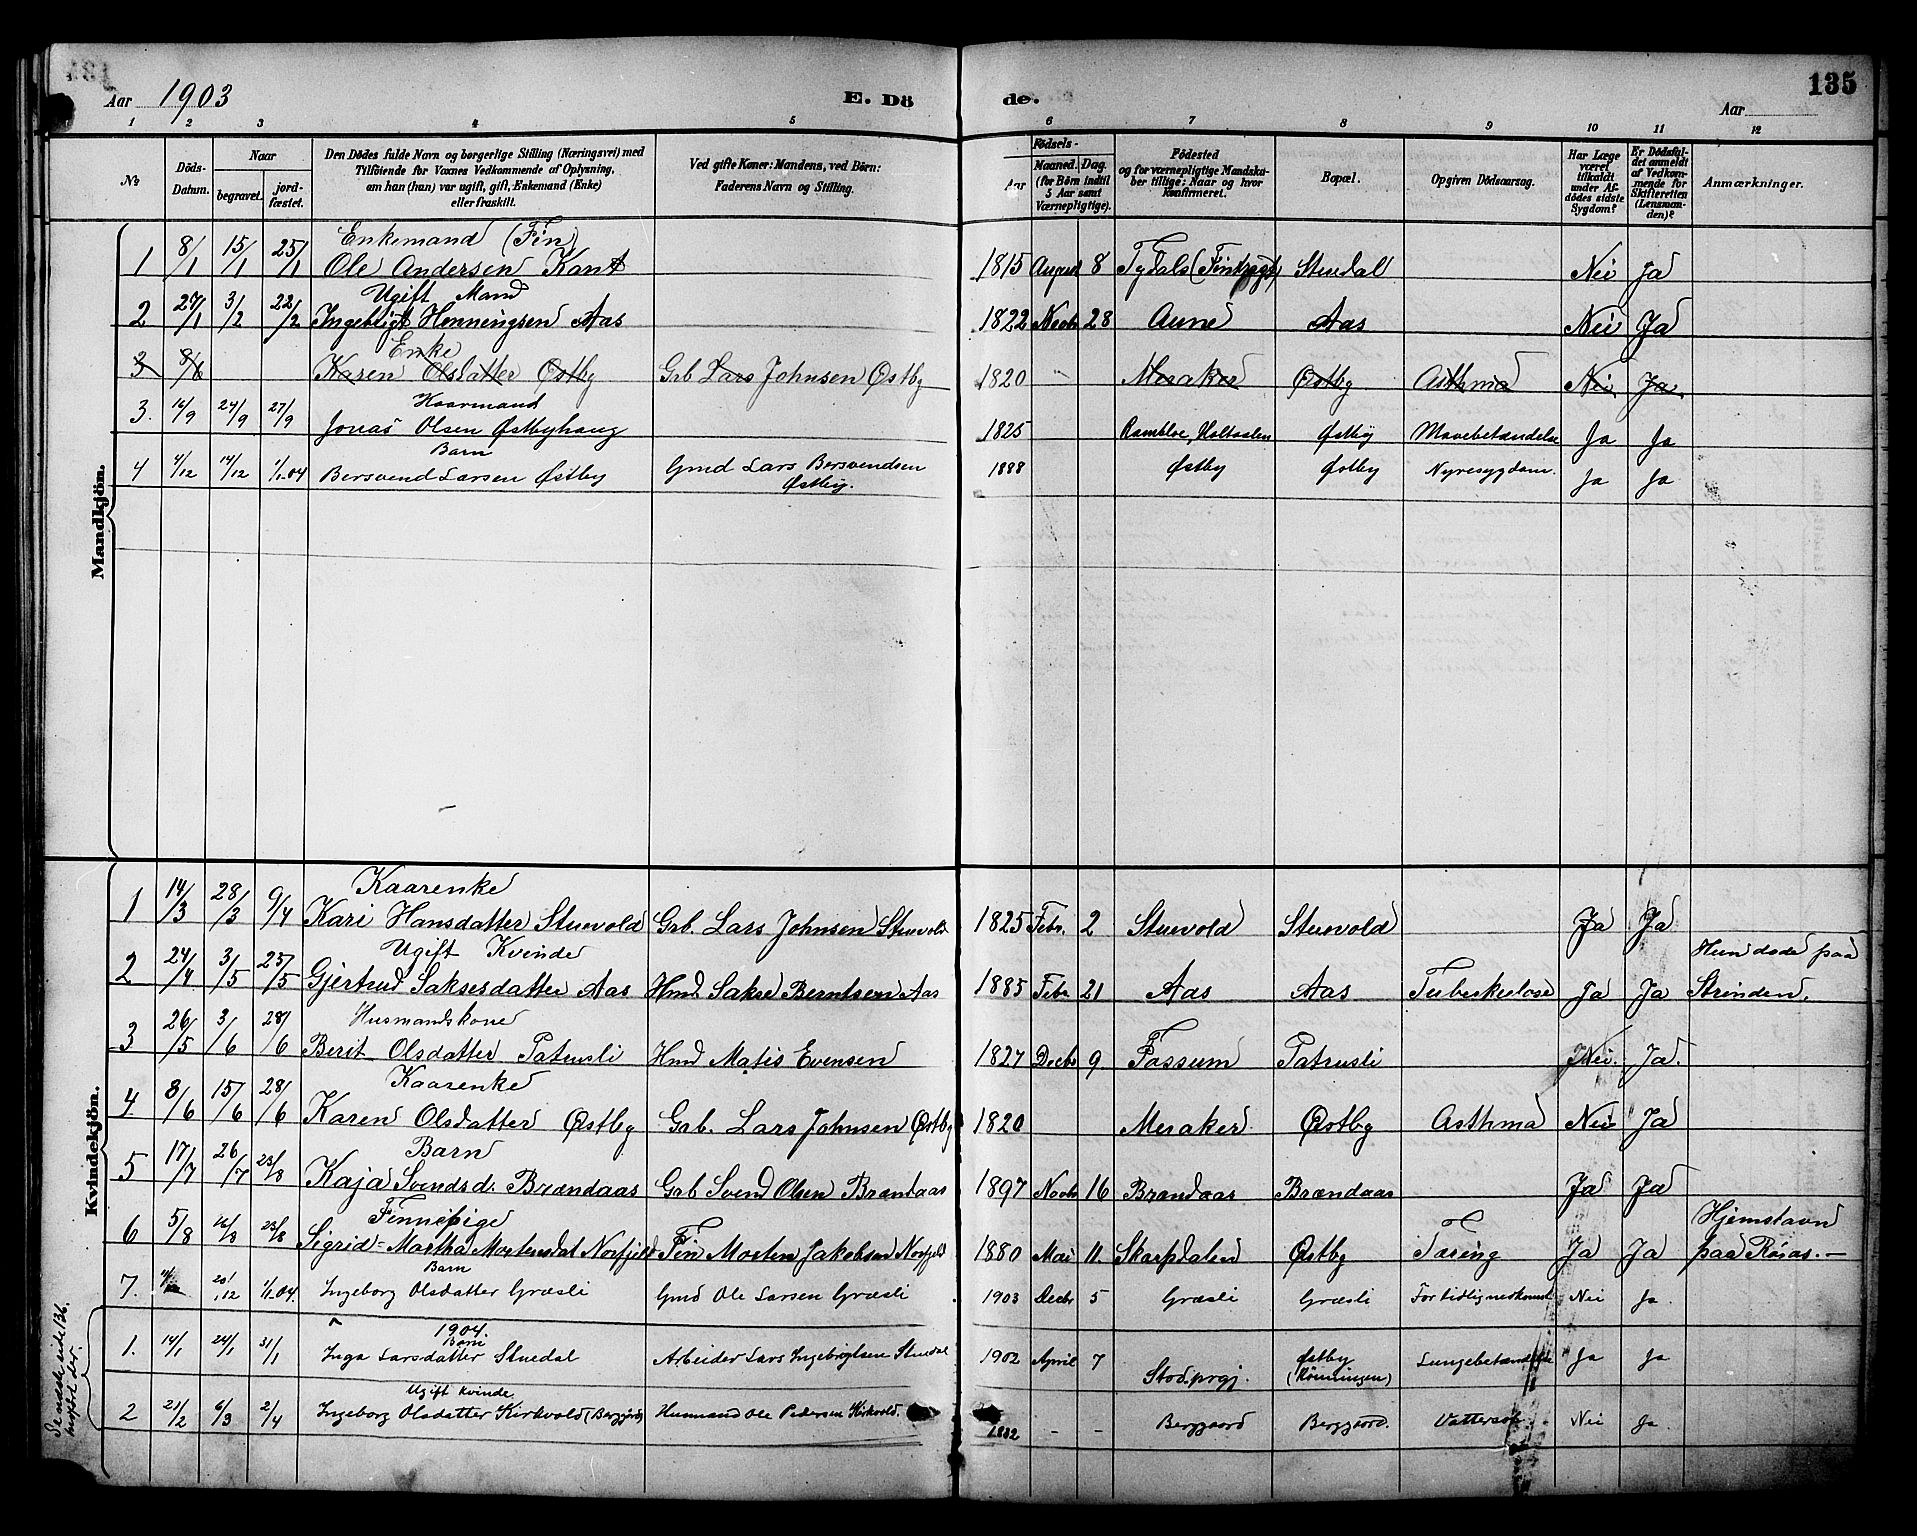 Aar 1903
E. Dö
de.
Aar
135
1 2 3 4 5 6 7 8 9 10 11 12
No
Döds-Datum.
Naar
begravet.
jord-fæstet.
Den Dödes fulde Navn og borgerlige Stilling (Næringsvei) med
Tilföiende for Voxnes Vedkommende af Oplysning,
om han (hun) var ugift, gift, Enkemand (Enke)
eller fraskilt.
Ved gifte Koner: Mandens, ved Börn:
Faderens Navn og Stilling.
Födsels-
Aar
Maaned. Dag.
(for Börn indtil
5 Aar samt
Værnepligtige).
Födested
og for værnepligtige Mandska-
ber tillige: Naar og hvor
Konfirmeret.
Bopæl.
Opgiven Dödsaarsag.
Har Læge
været
tilkaldt
under Af-
dödes sidste
Sygdom?
Er Dödsfal-
det anmeldt
af Vedkom-
mende for
Skifteretten
(Lensman-
den)?
Anmærkninger.
Mandkjön.
Enkemand (Fin)
1 8/1 15/1 25/1 Ole Andersen Kant 1815 August 8 Tydals Stuedal Nei Ja
Ugift Mand
2 27/1 3/2 22/2 Ingebrigt Henningsen Aas 1822 Novbr 28 Aune Aas Nei Ja
Enke
3 8/6 Karen Olsdatter Østby Grb Lars Johnsen Østby 1820 - Meraker Østby Asthma Nei Ja
Kaarmand
3. 16/9 24/9 27/9 Jonas Olsen Østbyhaug 1825 Holtaalen Østby Mavebetændelse Ja Ja
Barn
4 4/12 14/12 1/1-04 Bersvend Larsen Østby Gmd Lars Bersvendsen Østby. 1888 Østby Østby Nyresygdom. Ja Ja
Kvindekjön.
Kaarenke
1 14/3 28/3 9/4 Kari Hansdatter Stuevold Grb. Lars Johnsen Stuevold 1825 Febr. 2 Stuevold Stuevold Ja Ja
Ugift Kvinde
2 24/4 3/5 23/5 Gjertrud Saksesdatter Aas Hmd. Sakse Berntsen Aas 1885 Febr 21 Aas Aas Tuberkulose Ja Ja Hun døde paa Strinden.
Husmandskone
3 26/5 3/6 28/6 Berit Olsdatter Patrusli Hmd Matis Evensen 1827 Decbr 9 Fossum Patrusli Nei. Ja.
Kaarenke
4. 8/6 15/6 28/6 Karen Olsdatter Østby Grb. Lars Johnsen Østby 1820 Meraker Østby Asthma Nei Ja
Barn
5 17/7 26/7 23/8 Kaja Svendsd. Brændaas Grb Svend Olsen Brændaas 1897 Novbr 16 Brændaas Brændaas Ja Ja
Finnepige
6 5/8 16/8 23/8 Sigrid-Martha Mortensdat Norfjeld Fin Morten Jakobsen Norfjeld 1880 Mai 11. Skarpdalen Østby Tæring Ja Ja Hjemstavn paa Røros.-
Barn
7. 20/12 1/1-04. Ingeborg Olsdatter Græsli Gmd Ole Larsen Græsli 1903 Decbr 5 Græsli Græsli For tidlig nedkomst Nei Ja.
1904
Barn
1. 14/1 24/1 31/1 Inga Larsdatter Stuedal Arbeider Lars Ingebrigtsen Stuedal 1902 April 7 Stod. prgj. Østby (Rönningen) Lungebetændelse Ja Ja
Ugift Kvinde
2 21/2 6/3 2/4 Ingeborg Olsdatter Kirkvold (Berggård) Husmand Ole Pedersen Kirkvold. 1832 - - Berggaard Berggaard. Vattersot Nei Ja.
Se næste side 136.